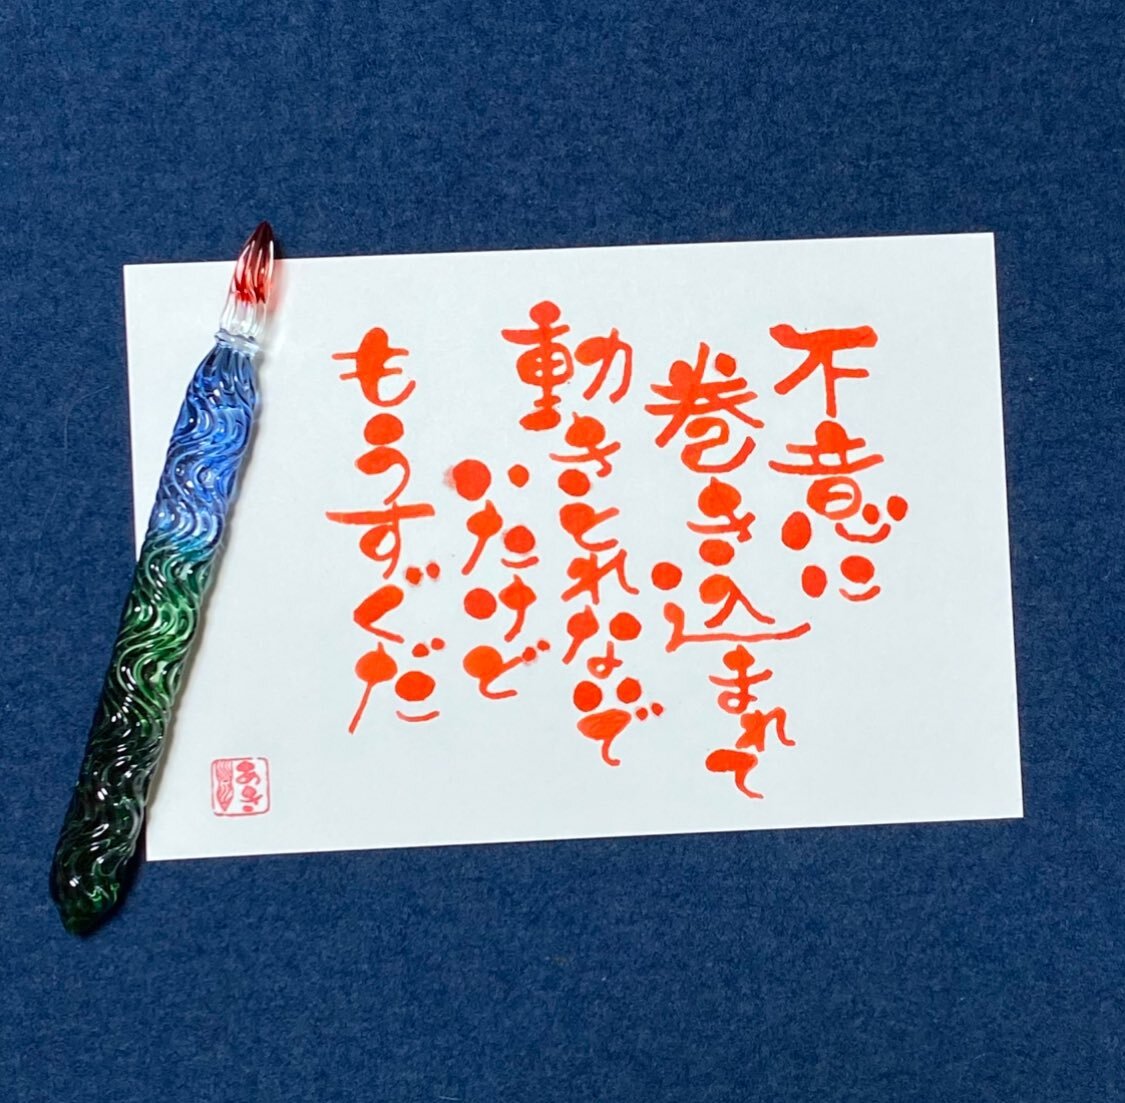 不意に
巻き込まれて
動きとれないで
いたけど
もうすぐだ